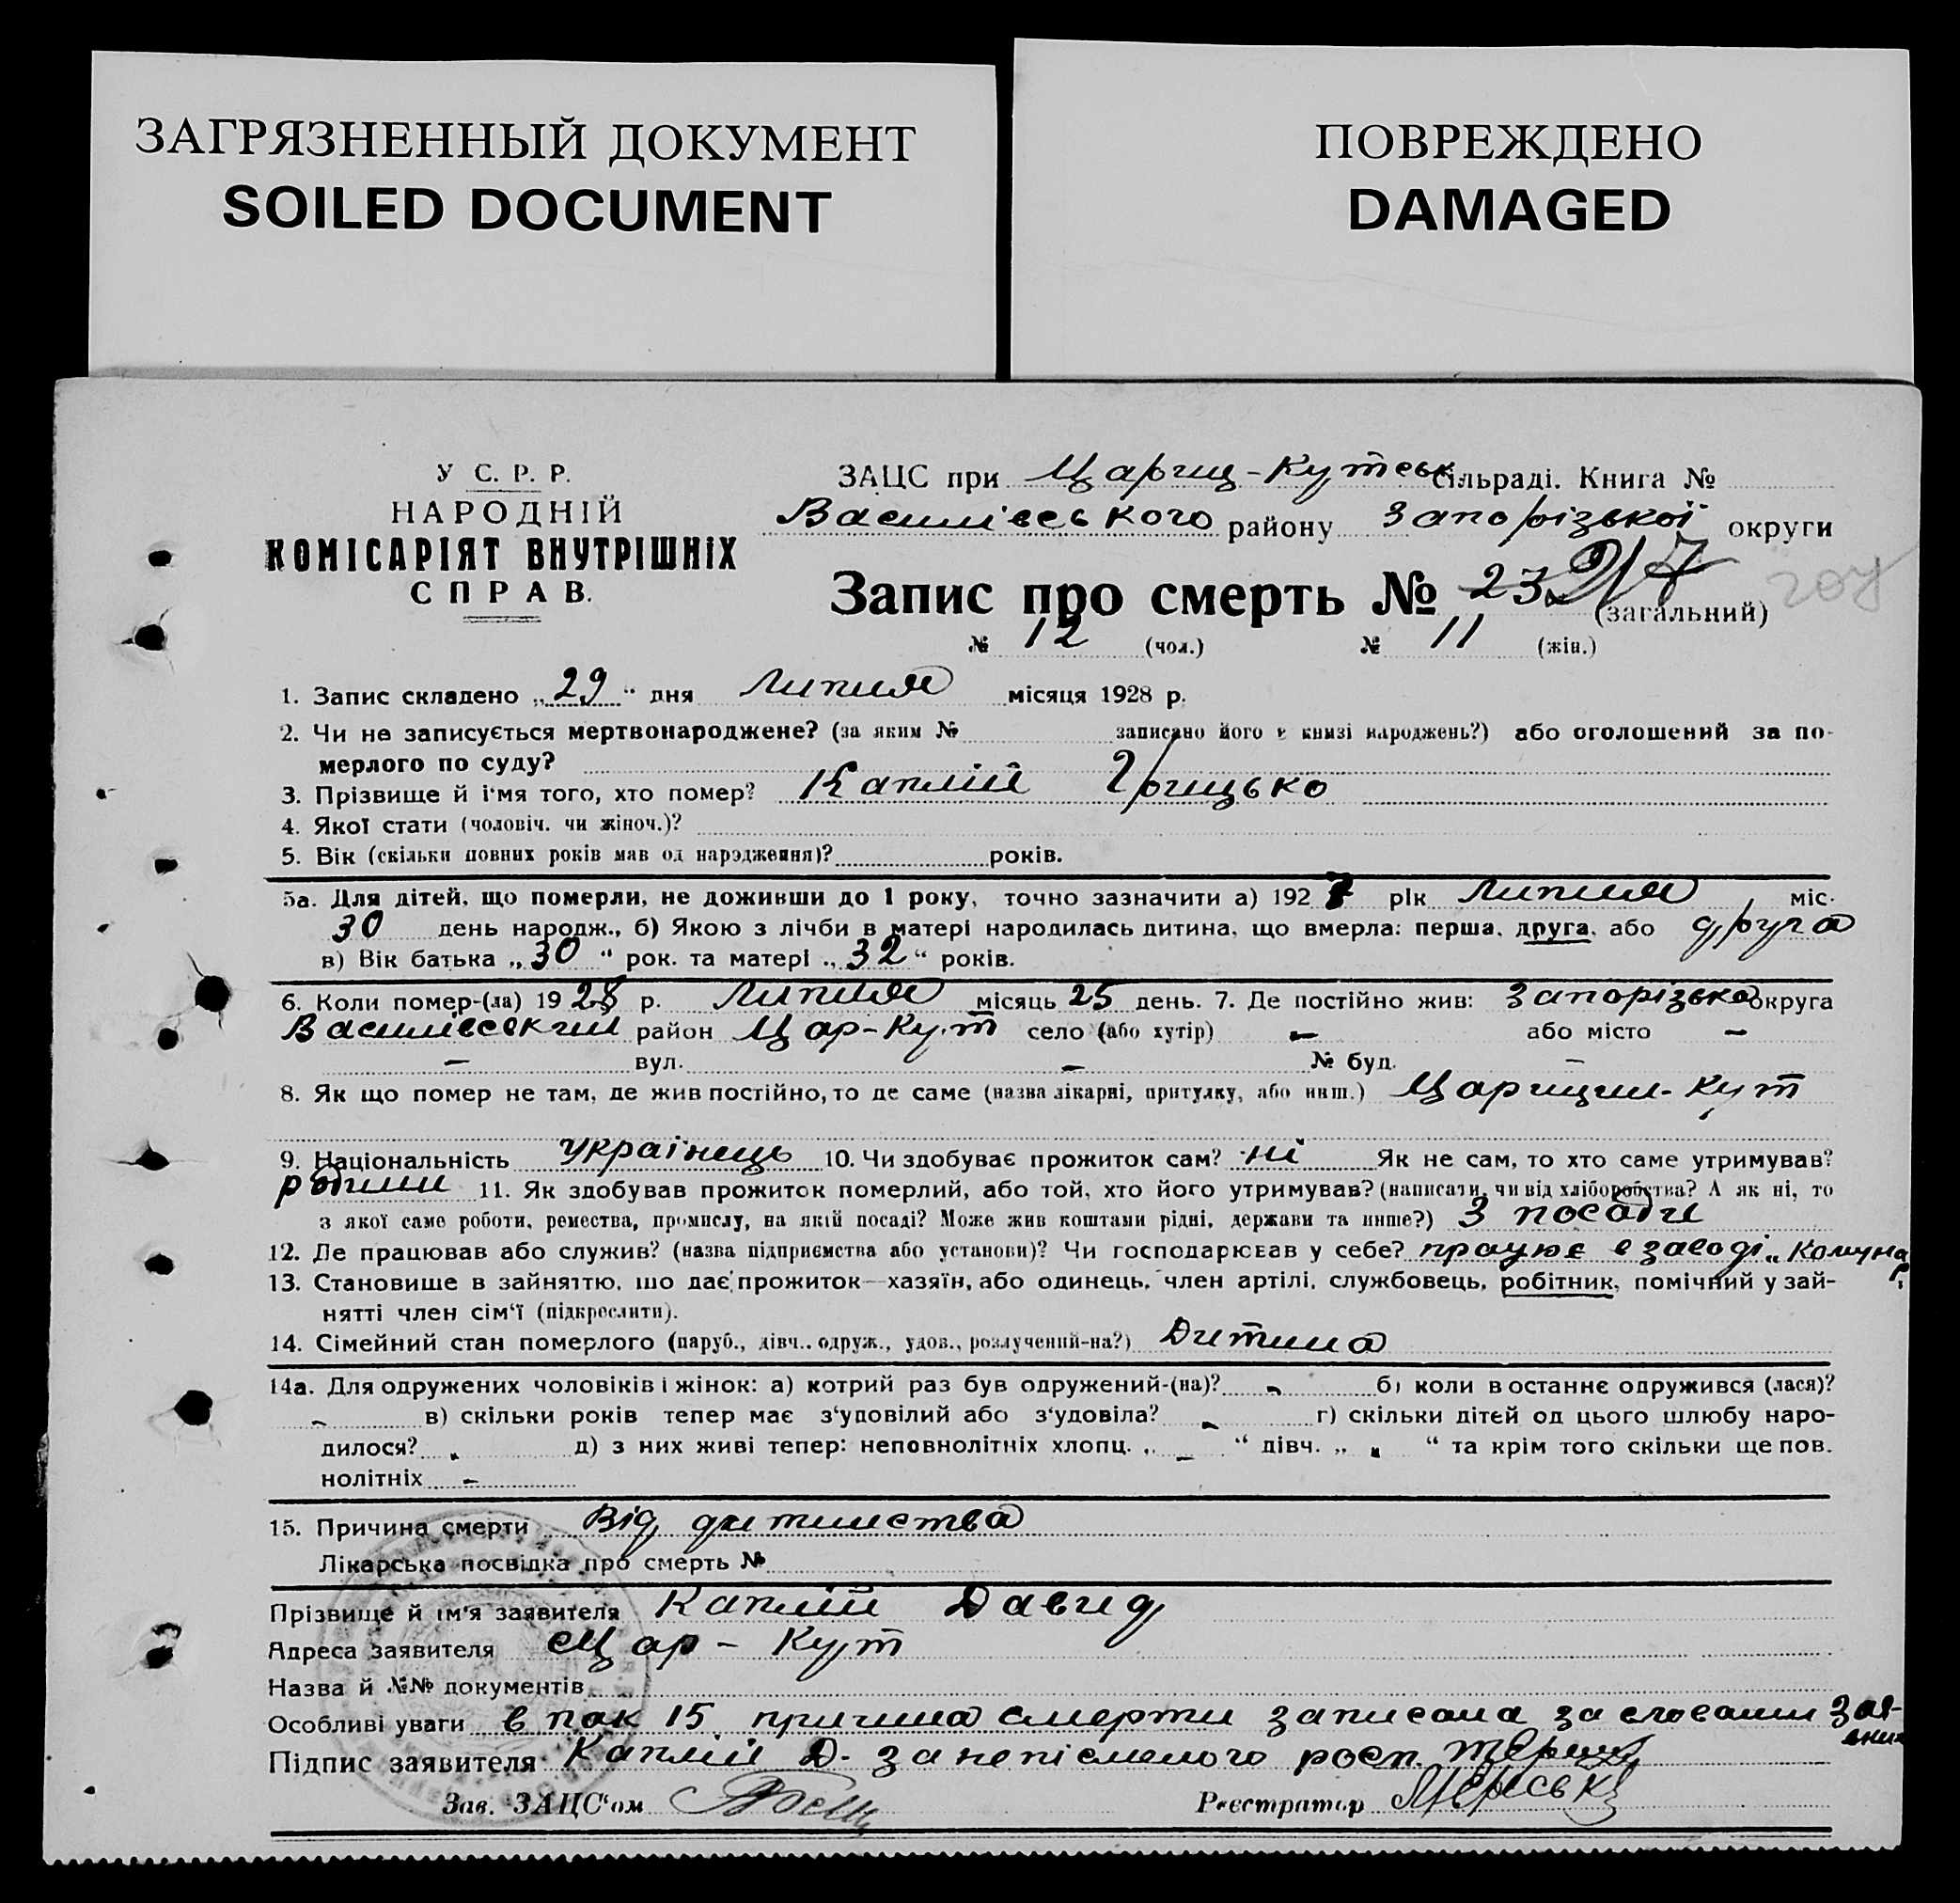 ЗАГРЯЗНЕННЫЙ ДОКУМЕНТ
SOILED DOCUMENT
ПОВРЕЖДЕНО
DAMAGED
У С. Р. Р.
НАРОДНІЙ
КОМІСАРІЯТ ВНУТРІШНІХ
СПРАВ.
ЗАЦС при Цариц-Кутськ сільраді. Книга №
Василівського району Запорізької округи
Запис про смерть № 23 217 (загальний)
№ 12 (чол.) № 11 (жін.)
1. Запис складено „29“ дня Липня місяця 1928 р.
2. Чи не записується мертвонароджене? (за яким № записано його в книзі народжень?) або оголошений за по-
мерлого по суду?
3. Прізвище й ім'я того, хто помер? Каплій Грицько
4. Якої стати (чоловіч. чи жіноч.)?
5. Вік (скільки повних років мав од народження)? років.
5а. Для дітей, що померли, не доживши до 1 року, точно зазначити а) 1927 рік Липня міс.
30 день народж., б) Якою з лічби в матері народилась дитина, що вмерла: перша, друга, або друга
в) Вік батька „30“ рок. та матері „32“ років.
6. Коли помер-(ла) 1928 р. Липня місяць 25 день. 7. Де постійно жив: Запорізька округа
Василівский район Цар-Кут село (або хутір) – або місто –
– вул. – № буд. –
8. Як що помер не там, де жив постійно, то де саме (назва лікарні, притулку, або инш.) Царицин-Кут
9. Національність Українець 10. Чи здобуває прожиток сам? ні Як не сам, то хто саме утримував?
родини 11. Як здобував прожиток померлий, або той, хто його утримував? (написати, чи від хліборобства? А як ні, то
з якої саме роботи, ремества, промислу, на якій посаді? Може жив коштами рідні, держави та инше?) З посади
12. Де працював або служив? (назва підприємства або установи)? Чи господарював у себе? працює в заводі „Комунар“
13. Становище в зайняттю, що дає прожиток—хазяїн, або одинець, член артілі, службовець, робітник, помічний у зай-
нятті член сім‘ї (підкреслити).
14. Сімейний стан померлого (паруб., дівч., одруж., удов., розлучений-на?) Дитина
14а. Для одружених чоловіків і жінок: а) котрий раз був одружений-(на)? - б) коли в останнє одружився (лася)?
- в) скільки років тепер має з‘удовілий або з‘удовіла? - г) скільки дітей од цього шлюбу наро-
дилося? - д) з них живі тепер: неповнолітніх хлопц. „ - “ дівч. „ - “ та крім того скільки ще пов.
нолітніх -
15. Причина смерти Від дитинства
Лікарська посвідка про смерть №
Прізвище й ім'я заявителя Каплій Давид
Адреса заявителя Цар-Кут
Назва й №№ документів
Особливі уваги в пак 15 причина смерти записана за словами заявника
Підпис заявителя Каплій Д. за неписьмен́ого росп.
Зав. ЗАЦС‘ом
Реєстратор